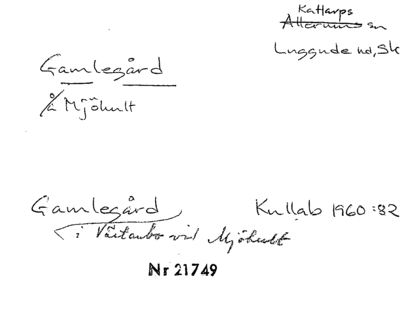 Kattarps
Allerums sn
Luggude hd, Sk
Gamlegård
å Mjöhult
Gamlegård Kullab 1960:82
i Västanbo vid Mjöhult
Nr 21749